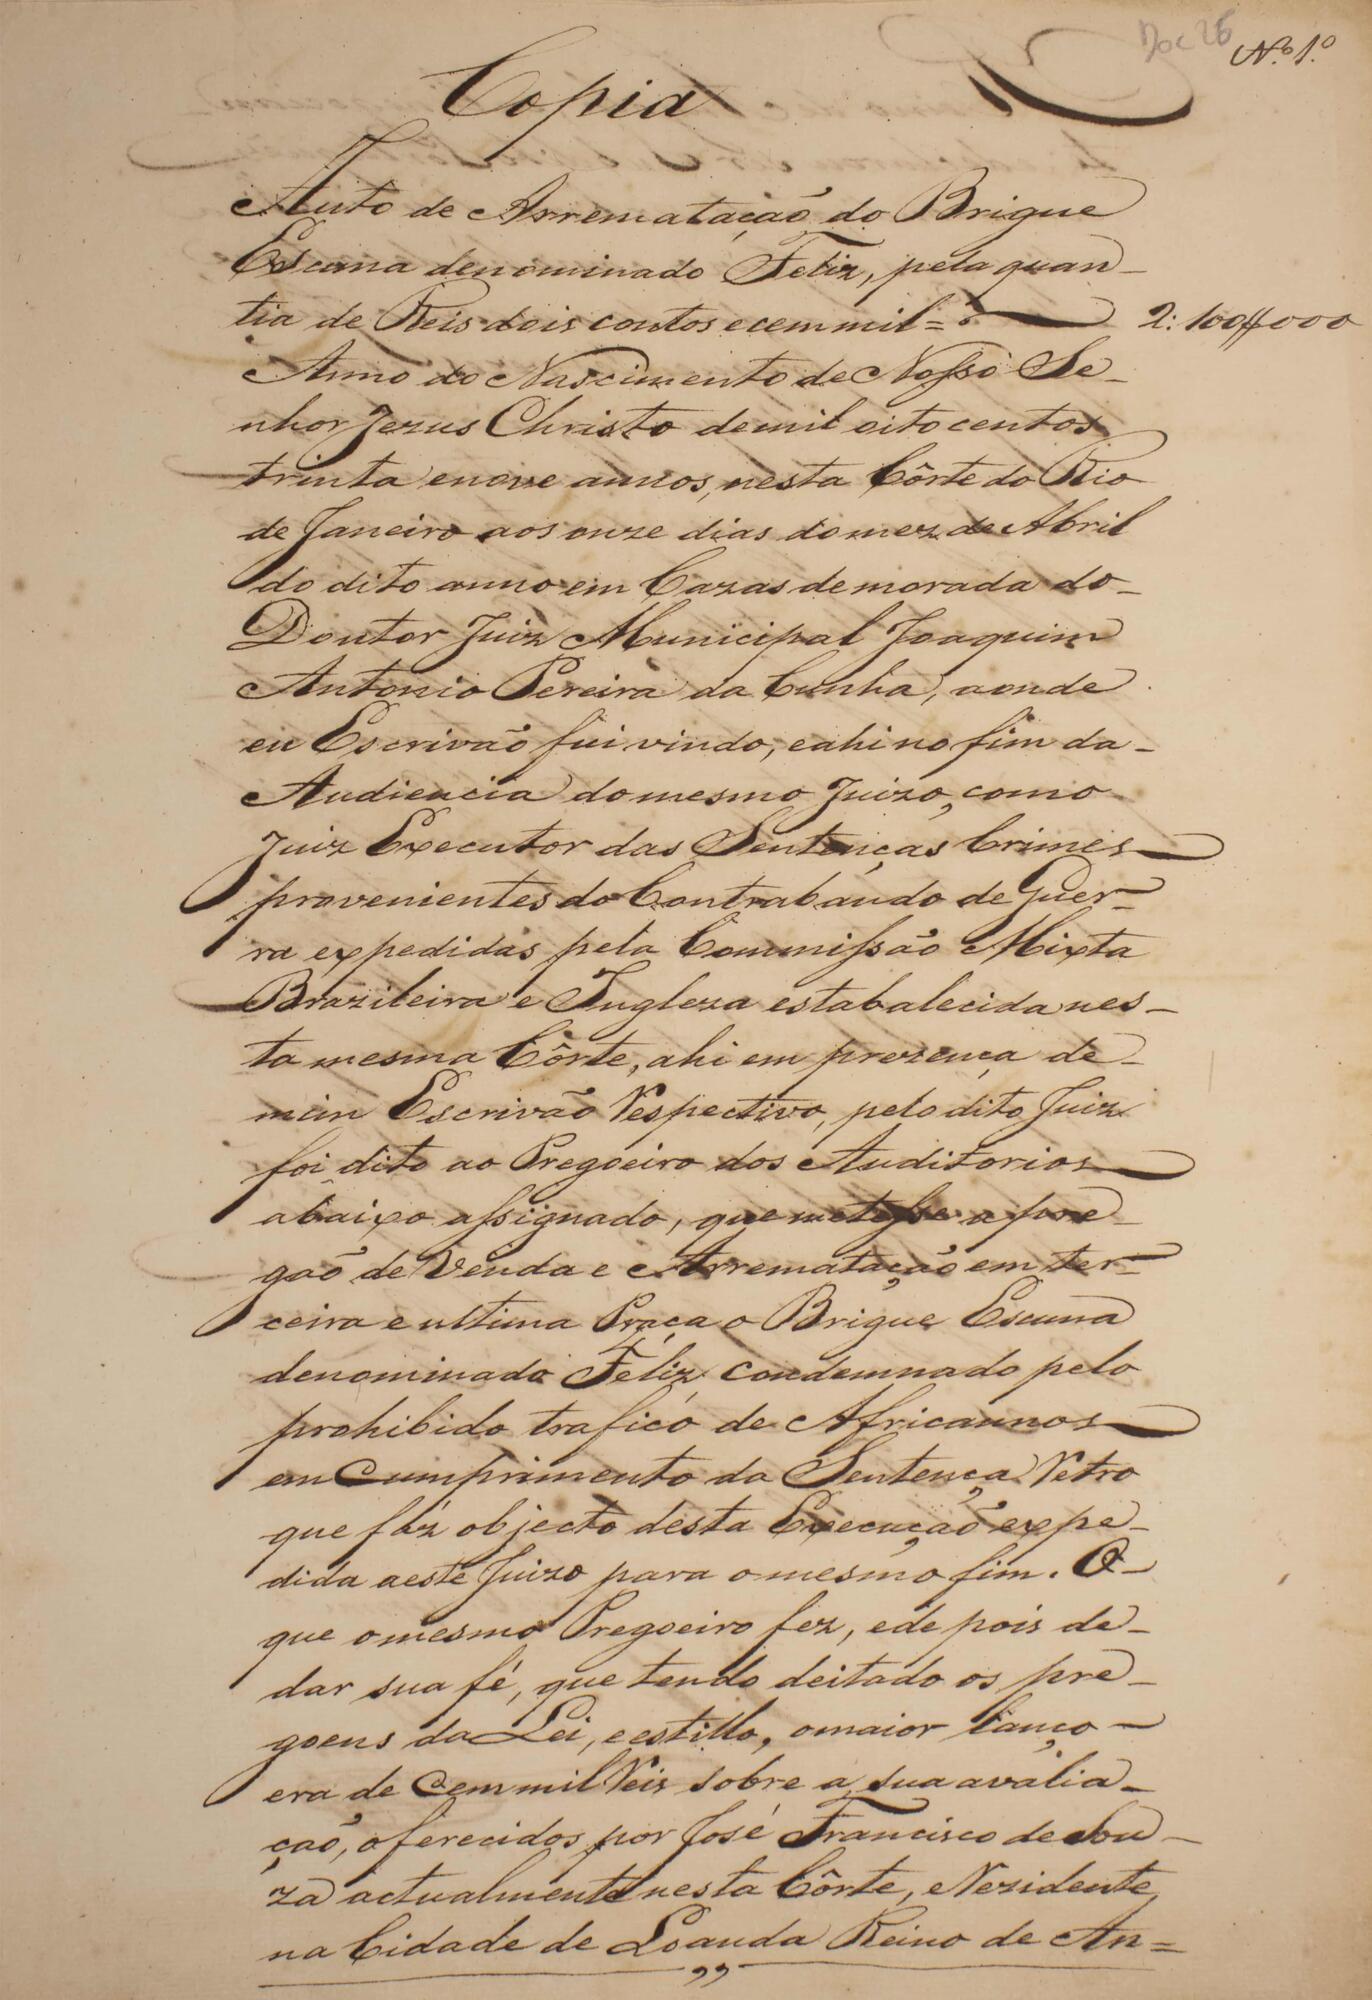 Doc 26
Nº 1º
Copia
Auto de Arremataçaõ do Brigue
Escuna denominado Feliz, pela quan-
tia de Reis dois contos e cem mil= 2:100$000
Anno do Nascimento de Nosso Se-
nhor Jezus Christo de mil oito centos
trinta e nove annos, nesta Côrte do Rio
de Janeiro aos onze dias do mez de Abril
do dito anno em Cazas de morada do-
Doutor Juiz Municipal Joaquim
Antonio Pereira da Cunha, aonde
eu Escrivaõ fui vindo, e ahi no fim da-
Audiencia do mesmo Juizo, como
Juiz Executor das Sentenças Crimes
provenientes do Contrabando de Guer-
ra expedidas pela Commissaõ Mixta
Brazileira e Ingleza estabalecida nes-
ta mesma Côrte, ahi em prezença de-
mim Escrivaõ Respectivo, pelo dito Juiz
foi dito ao Pregoeiro dos Auditorios
abaixo assignado, que metesse a pre-
gaõ de Venda e Arremataçaõ em ter-
ceira e ultima Praça o Brigue Escuna
denominado Feliz condemnado pelo
prohibido trafico de Africannos
em Cumprimento da Sentença Retro
que fáz objecto desta Execuçaõ expe-
dida a este Juizo para o mesmo fim. O-
que o mesmo Pregoeiro fez, e depois de-
dar sua fé, que tendo deitado os pre-
goens da Lei, e estillo, o maior lanço-
era de Cem mil Reis sobre a sua avalia-
çaõ, oferecidos por José Francisco de Sou-
za actualmente nesta Côrte, e Rezidente
na Cidade de Loanda Reino de An=